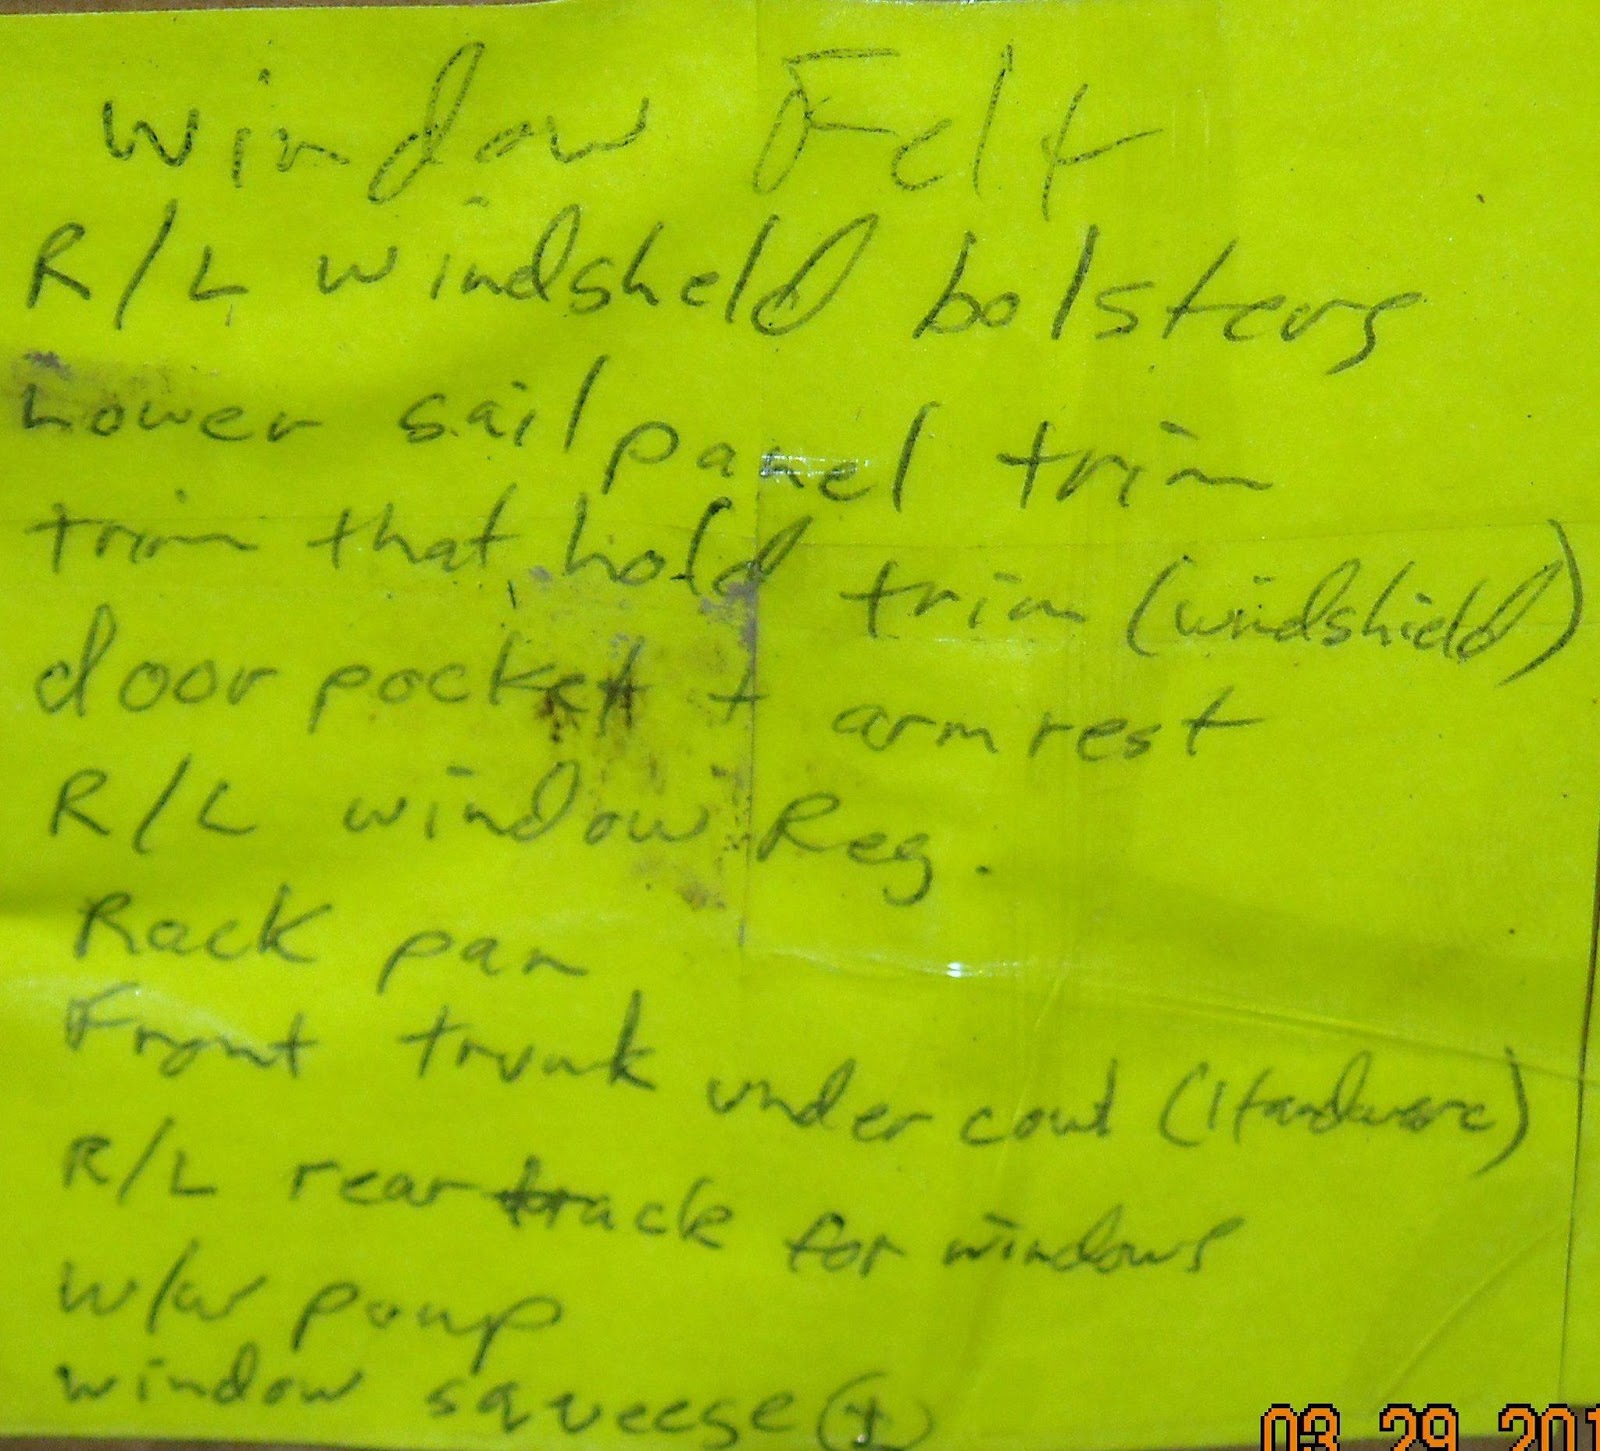 window Felt
R/L windsheld bolsters
Lower sail panel trim
trim that hold trim (windshield)
door pocket + armrest
R/L window Reg.
Rack pan
Front trunk under cowl (Hardware)
R/L rear track for windows
w/w pomp
window squeege
03 29 201